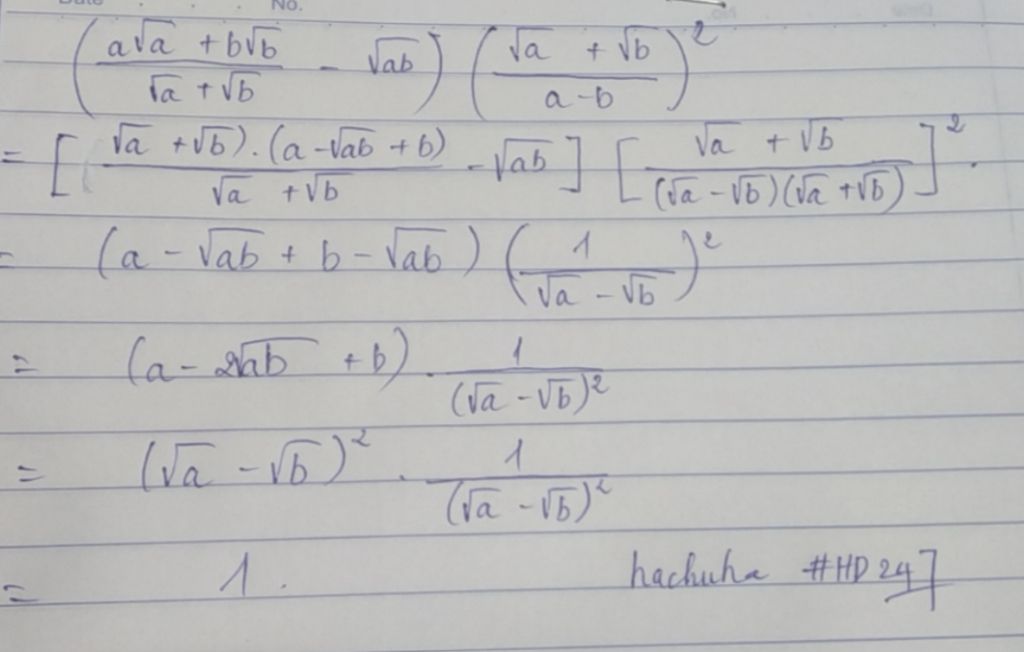 Date No.
(a√a + b√b / √a + √b - √ab) (√a + √b / a - b)²
= [√a + √b) . (a - √ab + b) / √a + √b - √ab] [√a + √b / (√a - √b)(√a + √b)]² .
= (a - √ab + b - √ab) (1 / √a - √b)²
= (a - 2√ab + b) . 1 / (√a - √b)²
= (√a - √b)² . 1 / (√a - √b)²
= 1 .
hachuha #HD247